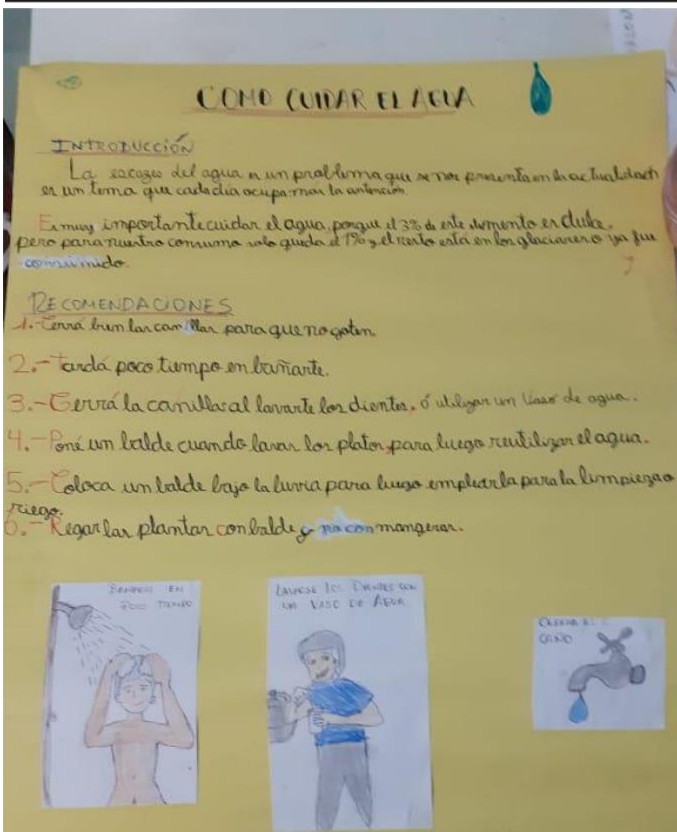 COMO CUIDAR EL AGUA
INTRODUCCIÓN
La escazes del agua es un problema que se nos presenta en la actualidad
es un tema que cada dia ocupa mas la antencion
Es muy importante cuidar el agua, porque el 3% de este elemento es dulce,
pero para nuestro consumo solo queda el 1% y el resto está en los glaciares o ya fue
consumido.
RECOMENDACIONES
1.- Cerrá bien las canillas para que no goten
2.- Tardá poco tiempo en bañarte.
3.- Cerrá la canilla al lavarte los dientes, ó utilizar un vaso de agua.
4.- Poné un balde cuando lavas los platos, para luego reutilizar el agua.
5.- Coloca un balde bajo la luvia para luego emplearla para la limpieza o
riego.
6.- Regar las plantas con balde y no con mangeras.
BAÑARSE EN
POCO TIEMPO
LAVARSE LOS DIENTES CON
UN VASO DE AGUA
CAÑO